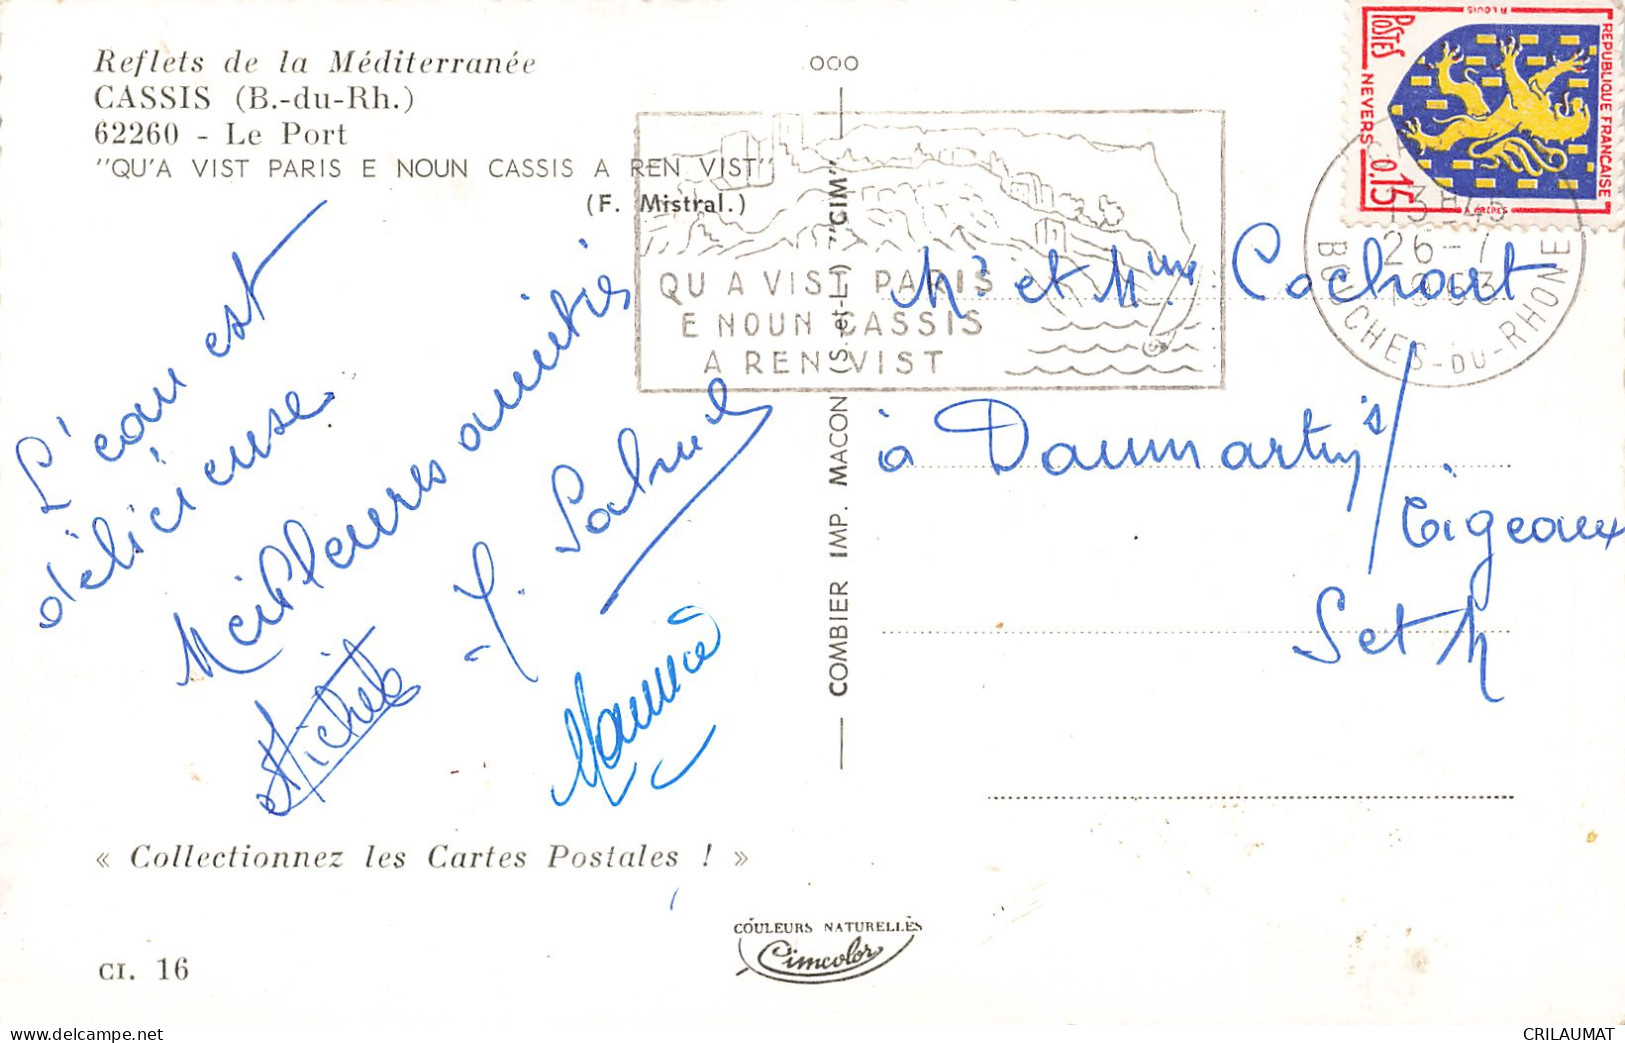 Reflets de la Méditerranée
CASSIS (B.-du-Rh.)
62260 - Le Port
"QU'A VIST PARIS E NOUN CASSIS A REN VIST"
(F. Mistral.)
L'eau est
délicieuse.
Meilleures amitiés
Michèle
Maurice
« Collectionnez les Cartes Postales ! »
CI. 16
COMBIER IMP. MACON (S.-et-L.) "CIM"
COULEURS NATURELLES
Cimcolor
QU A VIST PARIS
E NOUN CASSIS
A REN VIST
REPUBLIQUE FRANÇAISE
POSTES
NEVERS 0,15
13H45
26-7
BOUCHES-DU-RHONE
Mr et Mme Cochart
à Dammartin s/
Tigeaux
S et M
CRILAUMAT